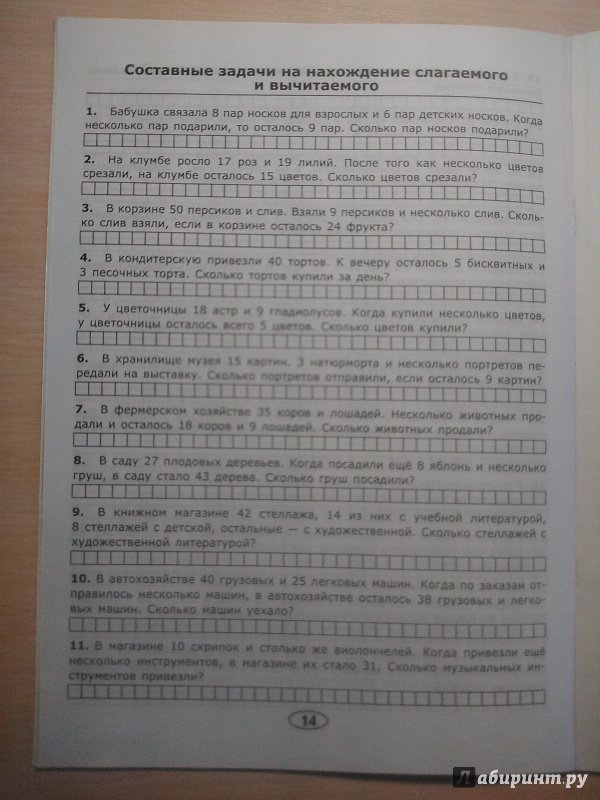 Составные задачи на нахождение слагаемого
и вычитаемого
1. Бабушка связала 8 пар носков для взрослых и 6 пар детских носков. Когда
несколько пар подарили, то осталось 9 пар. Сколько пар носков подарили?
2. На клумбе росло 17 роз и 19 лилий. После того как несколько цветов
срезали, на клумбе осталось 15 цветов. Сколько цветов срезали?
3. В корзине 50 персиков и слив. Взяли 9 персиков и несколько слив. Сколь-
ко слив взяли, если в корзине осталось 24 фрукта?
4. В кондитерскую привезли 40 тортов. К вечеру осталось 5 бисквитных и
3 песочных торта. Сколько тортов купили за день?
5. У цветочницы 18 астр и 9 гладиолусов. Когда купили несколько цветов,
у цветочницы осталось всего 5 цветов. Сколько цветов купили?
6. В хранилище музея 15 картин. 3 натюрморта и несколько портретов пе-
редали на выставку. Сколько портретов отправили, если осталось 9 картин?
7. В фермерском хозяйстве 35 коров и лошадей. Несколько животных про-
дали и осталось 18 коров и 9 лошадей. Сколько животных продали?
8. В саду 27 плодовых деревьев. Когда посадили ещё 8 яблонь и несколько
груш, в саду стало 43 дерева. Сколько груш посадили?
9. В книжном магазине 42 стеллажа, 14 из них с учебной литературой,
8 стеллажей с детской, остальные — с художественной. Сколько стеллажей с
художественной литературой?
10. В автохозяйстве 40 грузовых и 25 легковых машин. Когда по заказам от-
правилось несколько машин, в автохозяйстве осталось 38 грузовых и легко-
вых машин. Сколько машин уехало?
11. В магазине 10 скрипок и столько же виолончелей. Когда привезли ещё
несколько инструментов, в магазине их стало 31. Сколько музыкальных ин-
струментов привезли?
14
Л абиринт.ру